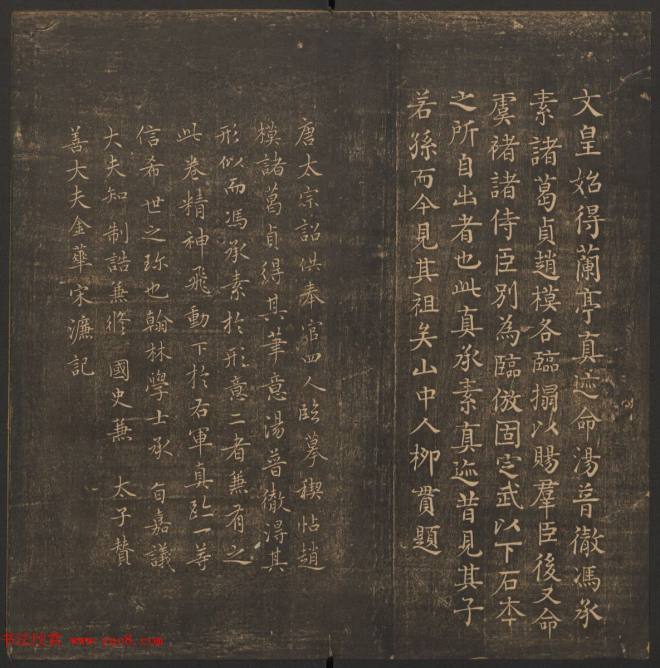 文皇始得蘭亭真迹命湯普徹馮承
素諸葛貞趙模各臨搨以賜羣臣後又命
虞褚諸侍臣別為臨倣固定武以下石本
之所自出者也此真承素真迹昔見其子
若孫而今見其祖矣山中人柳貫題
唐太宗詔供奉官四人臨摹禊帖趙
模諸葛貞得其筆意湯普徹淂其
形似而馮承素於形意二者兼有之
此卷精神飛動下於右軍真迹一等
信希世之珎也翰林學士承 旨嘉議
大夫知制誥兼修 國史兼 太子贊
善大夫金華宋濂記
书法欣赏 www.yac8.com